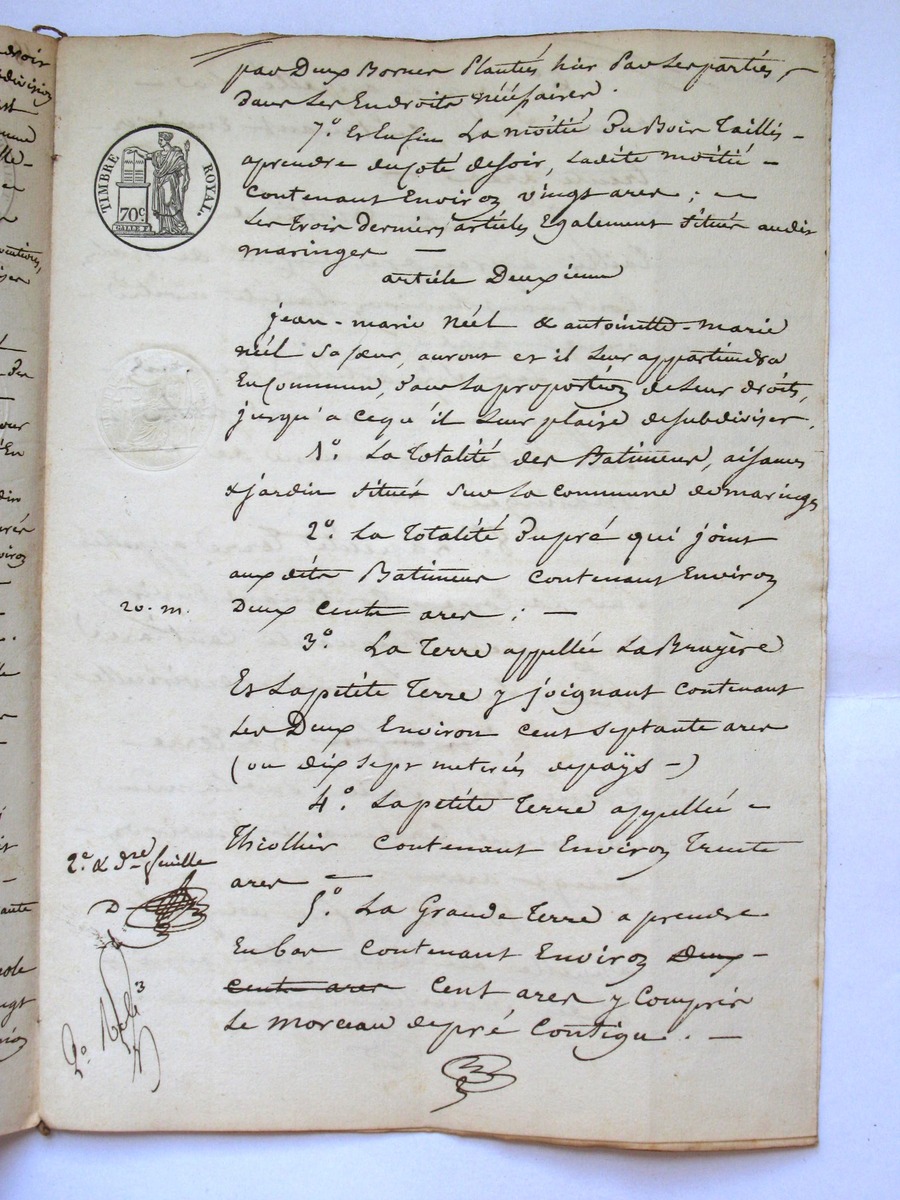 par Deux Bornes Plantés hier Par les parties,
dans les Endroits nécéssaires.
7.° Et Enfin La moitié Du Bois Taillis
aprendre du coté de soir, Ladite moitié
contenant Environ vingt ares ;
Les trois derniers articles Egalement situés audit
maringes
article Deuxieme
jean-marie néel & antoinette-marie
néel sa sœur, auront et il leur appartiendra
En commun, dans la proportion de leur droits,
jusqu'a ce qu'il leur plaise de subdiviser.
1.° La Totalité des Batimens, aisances
& jardin situés sur la commune de maringes
2.° La Totalité Du pré qui joint
aux dits Batimens contenant Environ
Deux cents ares ;
3.° La Terre appellée La Bruyère
Et La petite Terre y joignant contenant
Les Deux Environ cent septante ares
(ou dix sept meterés de pays)
4.° La petite Terre appellée
Thiollier contenant Environ Trente
ares
5.° La Grande Terre a prendre
En bas contenant Environ Deux
cents ares Cent ares y Compris
Le morceau de pré Contigu.
TIMBRE ROYAL.
70c.
20. m.
2.e & dre feuille
D